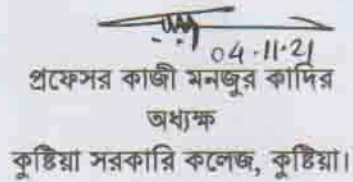 04.11.21
প্রফেসর কাজী মনজুর কাদির
অধ্যক্ষ
কুষ্টিয়া সরকারি কলেজ, কুষ্টিয়া।